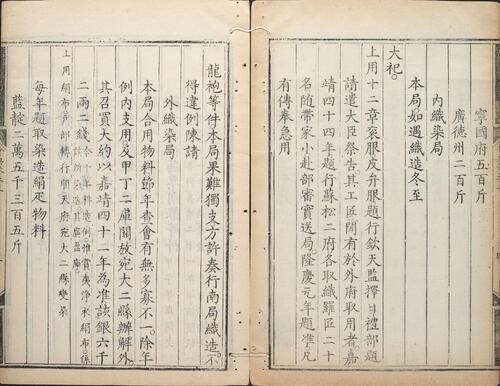 寧國府五百斤
廣德州二百斤
內織染局
本局如遇織造冬至
大祀
上用十二章袞服皮弁服題行欽天監擇日禮部題
請遣大臣祭告其工匠開有於外府取用者嘉
靖四十四年題行蘇松二府各取織羅匠二十
名隨帶家小赴部審實送局隆慶元年題准凡
有傳奉急用
龍袍等件本局果難獨支方許奏行南局織造不
得違例陳請
外織染局
本局合用物料節年查會有無多寡不一除年
例內支用及甲丁二庫關放宛大二縣辦解外
其召買大約以嘉靖四十二年為准該銀六千
二兩二錢
上用絹布戶部轉行順天府宛大二縣變染
每年題取染造絹疋物料
藍靛二萬五千三百五斤